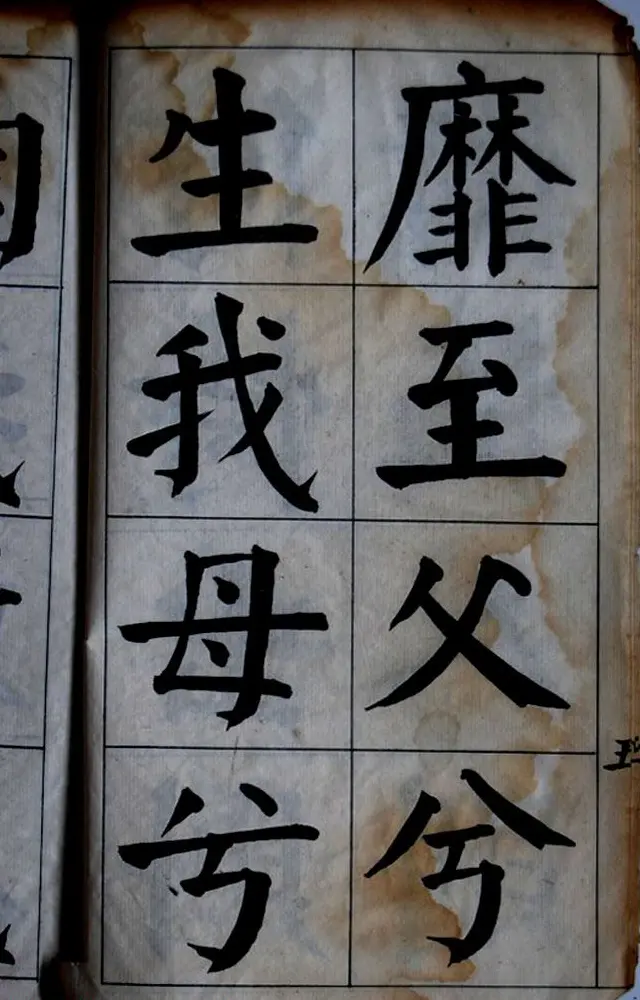 靡至父兮
生我母兮